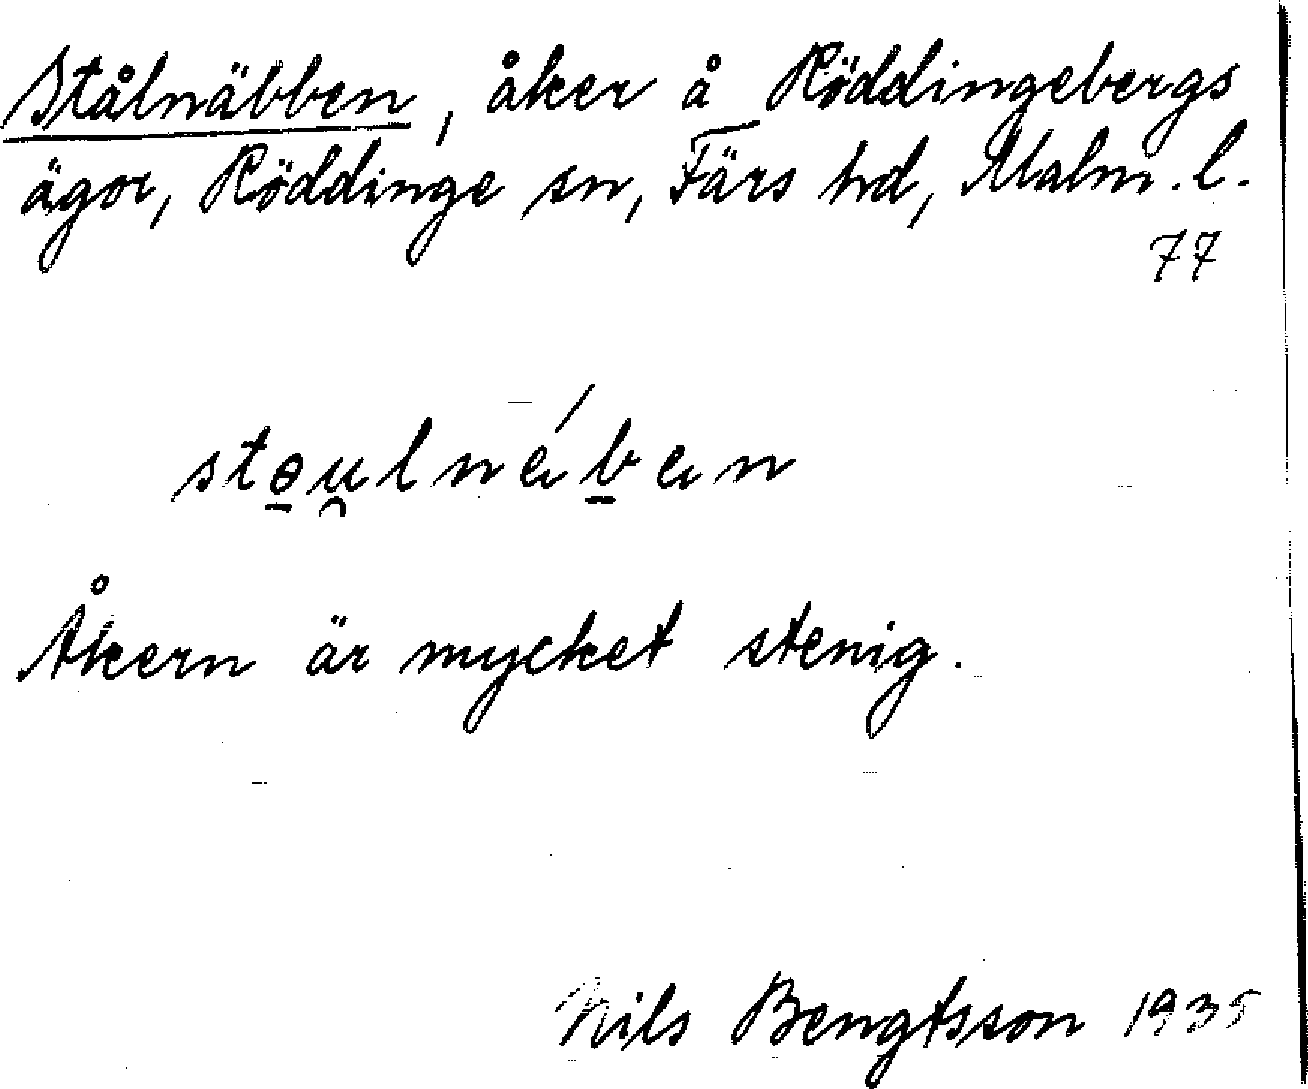 Stålnäbben, åker å Röddingebergs
ägor, Röddinge sn, Färs hd, Malm. l.
77
stɵu̯lnében
Åkern är mycket stenig.
Nils Bengtsson 1935